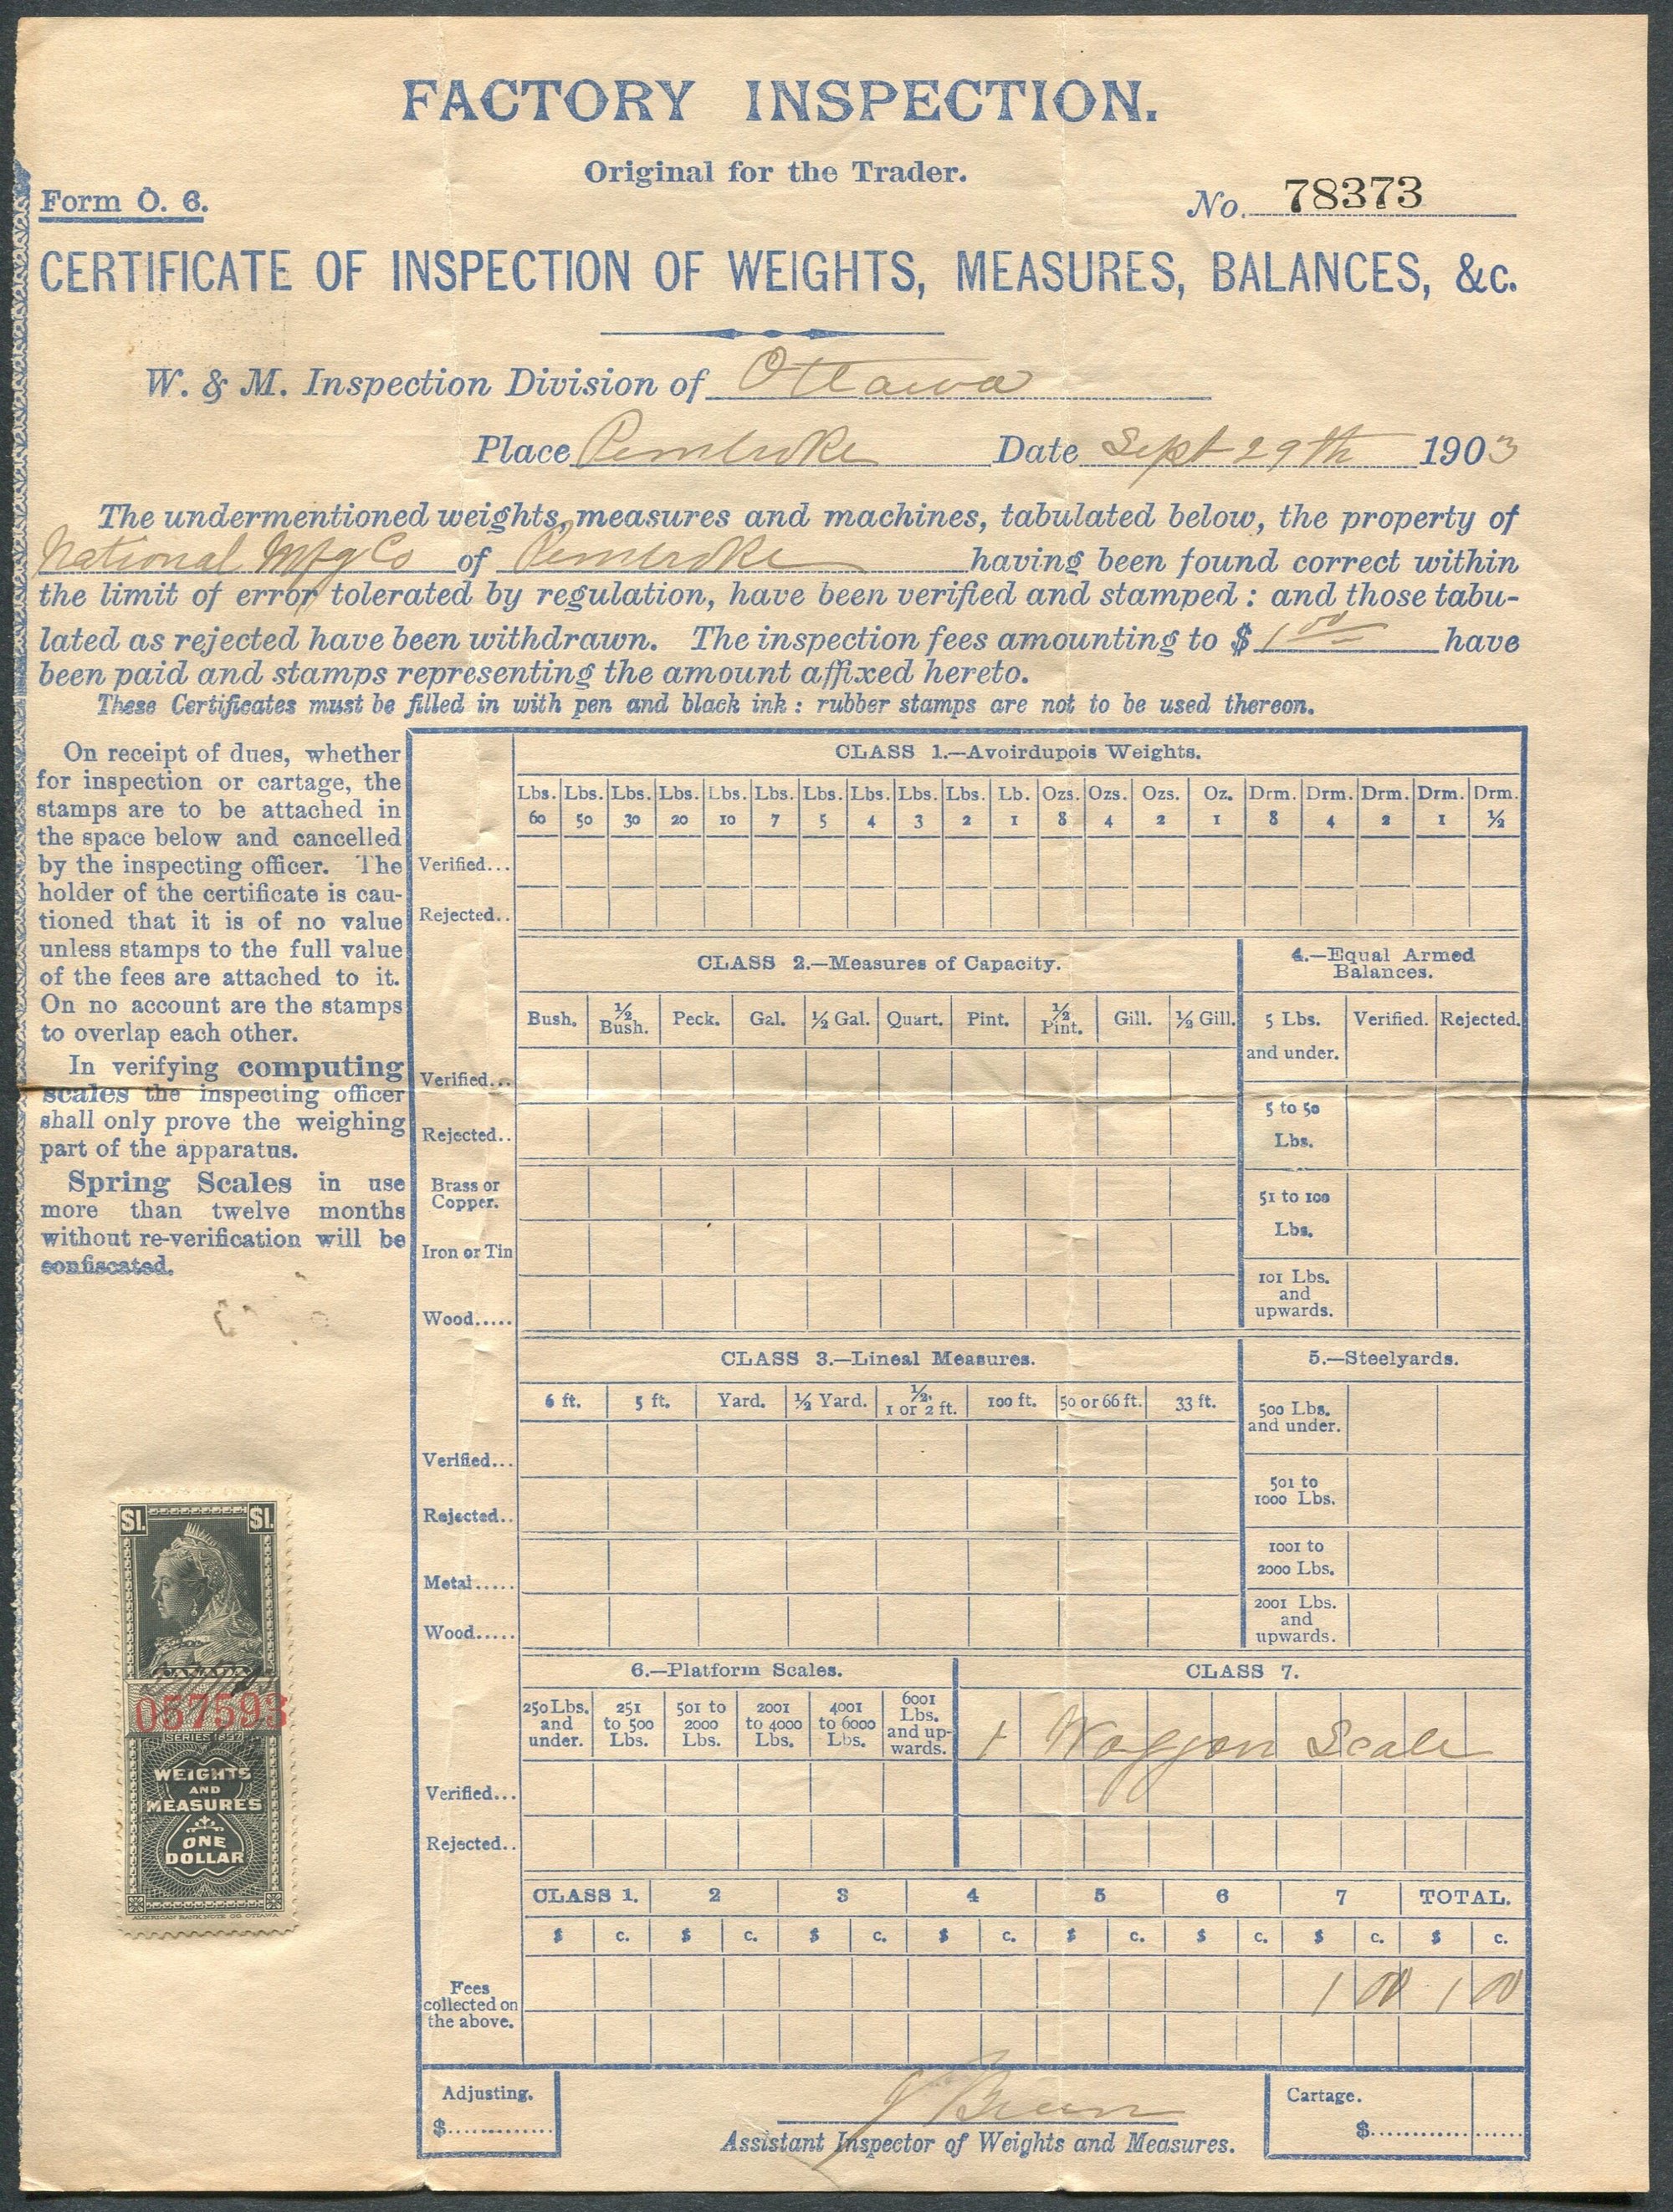 FACTORY INSPECTION.
Original for the Trader.
Form O. 6.
No. 78373
CERTIFICATE OF INSPECTION OF WEIGHTS, MEASURES, BALANCES, &c.
W. & M. Inspection Division of Ottawa
Place Pembroke Date Sept 29th 1903
The undermentioned weights, measures and machines, tabulated below, the property of
National Mfg Co of Pembroke having been found correct within
the limit of error tolerated by regulation, have been verified and stamped : and those tabu-
lated as rejected have been withdrawn. The inspection fees amounting to $ 1 00 have
been paid and stamps representing the amount affixed hereto.
These Certificates must be filled in with pen and black ink : rubber stamps are not to be used thereon.
On receipt of dues, whether
for inspection or cartage, the
stamps are to be attached in
the space below and cancelled
by the inspecting officer. The
holder of the certificate is cau-
tioned that it is of no value
unless stamps to the full value
of the fees are attached to it.
On no account are the stamps
to overlap each other.
In verifying computing
scales the inspecting officer
shall only prove the weighing
part of the apparatus.
Spring Scales in use
more than twelve months
without re-verification will be
confiscated.
$1. $1.
057593
SERIES 1897
WEIGHTS
AND
MEASURES
ONE
DOLLAR
AMERICAN BANK NOTE CO. OTTAWA
CLASS 1.—Avoirdupois Weights.
Lbs. Lbs. Lbs. Lbs. Lbs. Lbs. Lbs. Lbs. Lbs. Lbs. Lb. Ozs. Ozs. Ozs. Oz. Drm. Drm. Drm. Drm. Drm.
60 50 30 20 10 7 5 4 3 2 1 8 4 2 1 8 4 2 1 ½
Verified...
Rejected..
CLASS 2.—Measures of Capacity.
Bush. ½ Bush. Peck. Gal. ½ Gal. Quart. Pint. ½ Pint. Gill. ½ Gill.
Verified...
Rejected..
Brass or
Copper.
Iron or Tin
Wood.....
4.—Equal Armed
Balances.
5 Lbs. Verified. Rejected.
and under.
5 to 50
Lbs.
51 to 100
Lbs.
101 Lbs.
and
upwards.
CLASS 3.—Lineal Measures.
6 ft. 5 ft. Yard. ½ Yard. ½, 1 or 2 ft. 100 ft. 50 or 66 ft. 33 ft.
Verified...
Rejected..
Metal.....
Wood.....
5.—Steelyards.
500 Lbs.
and under.
501 to
1000 Lbs.
1001 to
2000 Lbs.
2001 Lbs.
and
upwards.
6.—Platform Scales.
250 Lbs. and under. 251 to 500 Lbs. 501 to 2000 Lbs. 2001 to 4000 Lbs. 4001 to 6000 Lbs. 6001 Lbs. and up-wards.
Verified...
Rejected..
CLASS 7.
1 Waggon Scale
CLASS 1. 2 3 4 5 6 7 TOTAL.
$ c. $ c. $ c. $ c. $ c. $ c. $ c. $ c.
1 00 1 00
Fees
collected on
the above.
Adjusting.
$.............
Assistant Inspector of Weights and Measures.
Cartage.
$....................